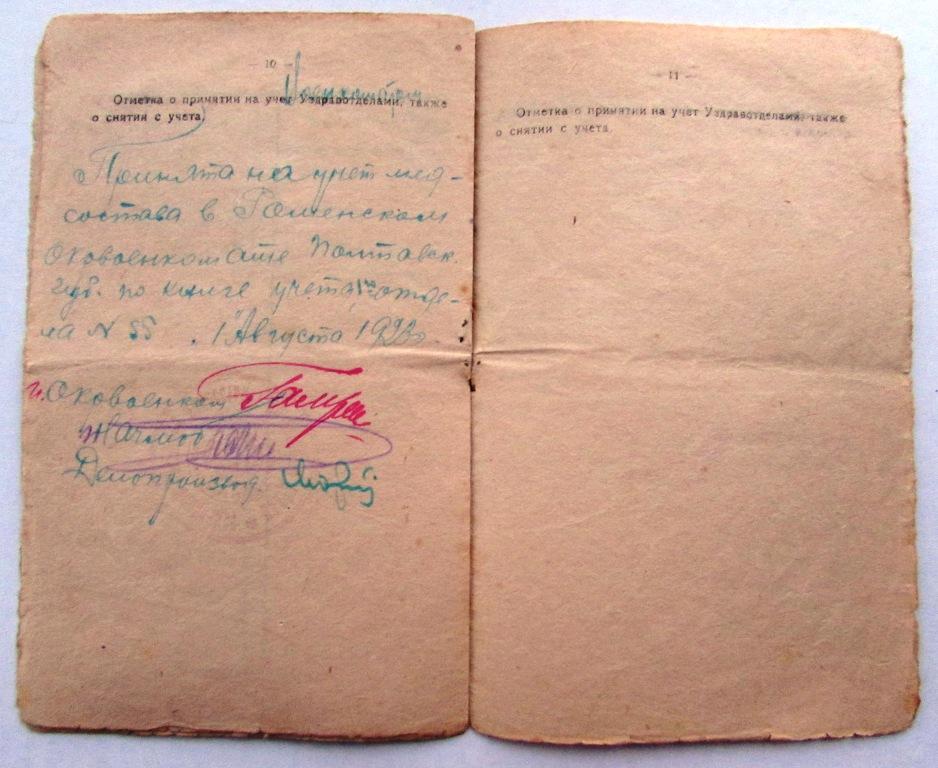 — 10 —
Отметка о принятии на учет Уздравотделами, также
о снятии с учета.
Принята на учет мед-
состава в Роменском
Оковоенкомате Полтавск.
губ. по книге учета 1го отде-
ла № 55. 1 Августа 1923 г.
Оковоенком
Начмоб
Делопроизвод.
11
Отметка о принятии на учет Уздравотделами, также
о снятии с учета.